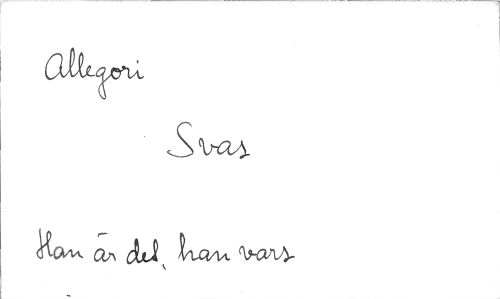 Allegori
Svas
Han är det, han vars